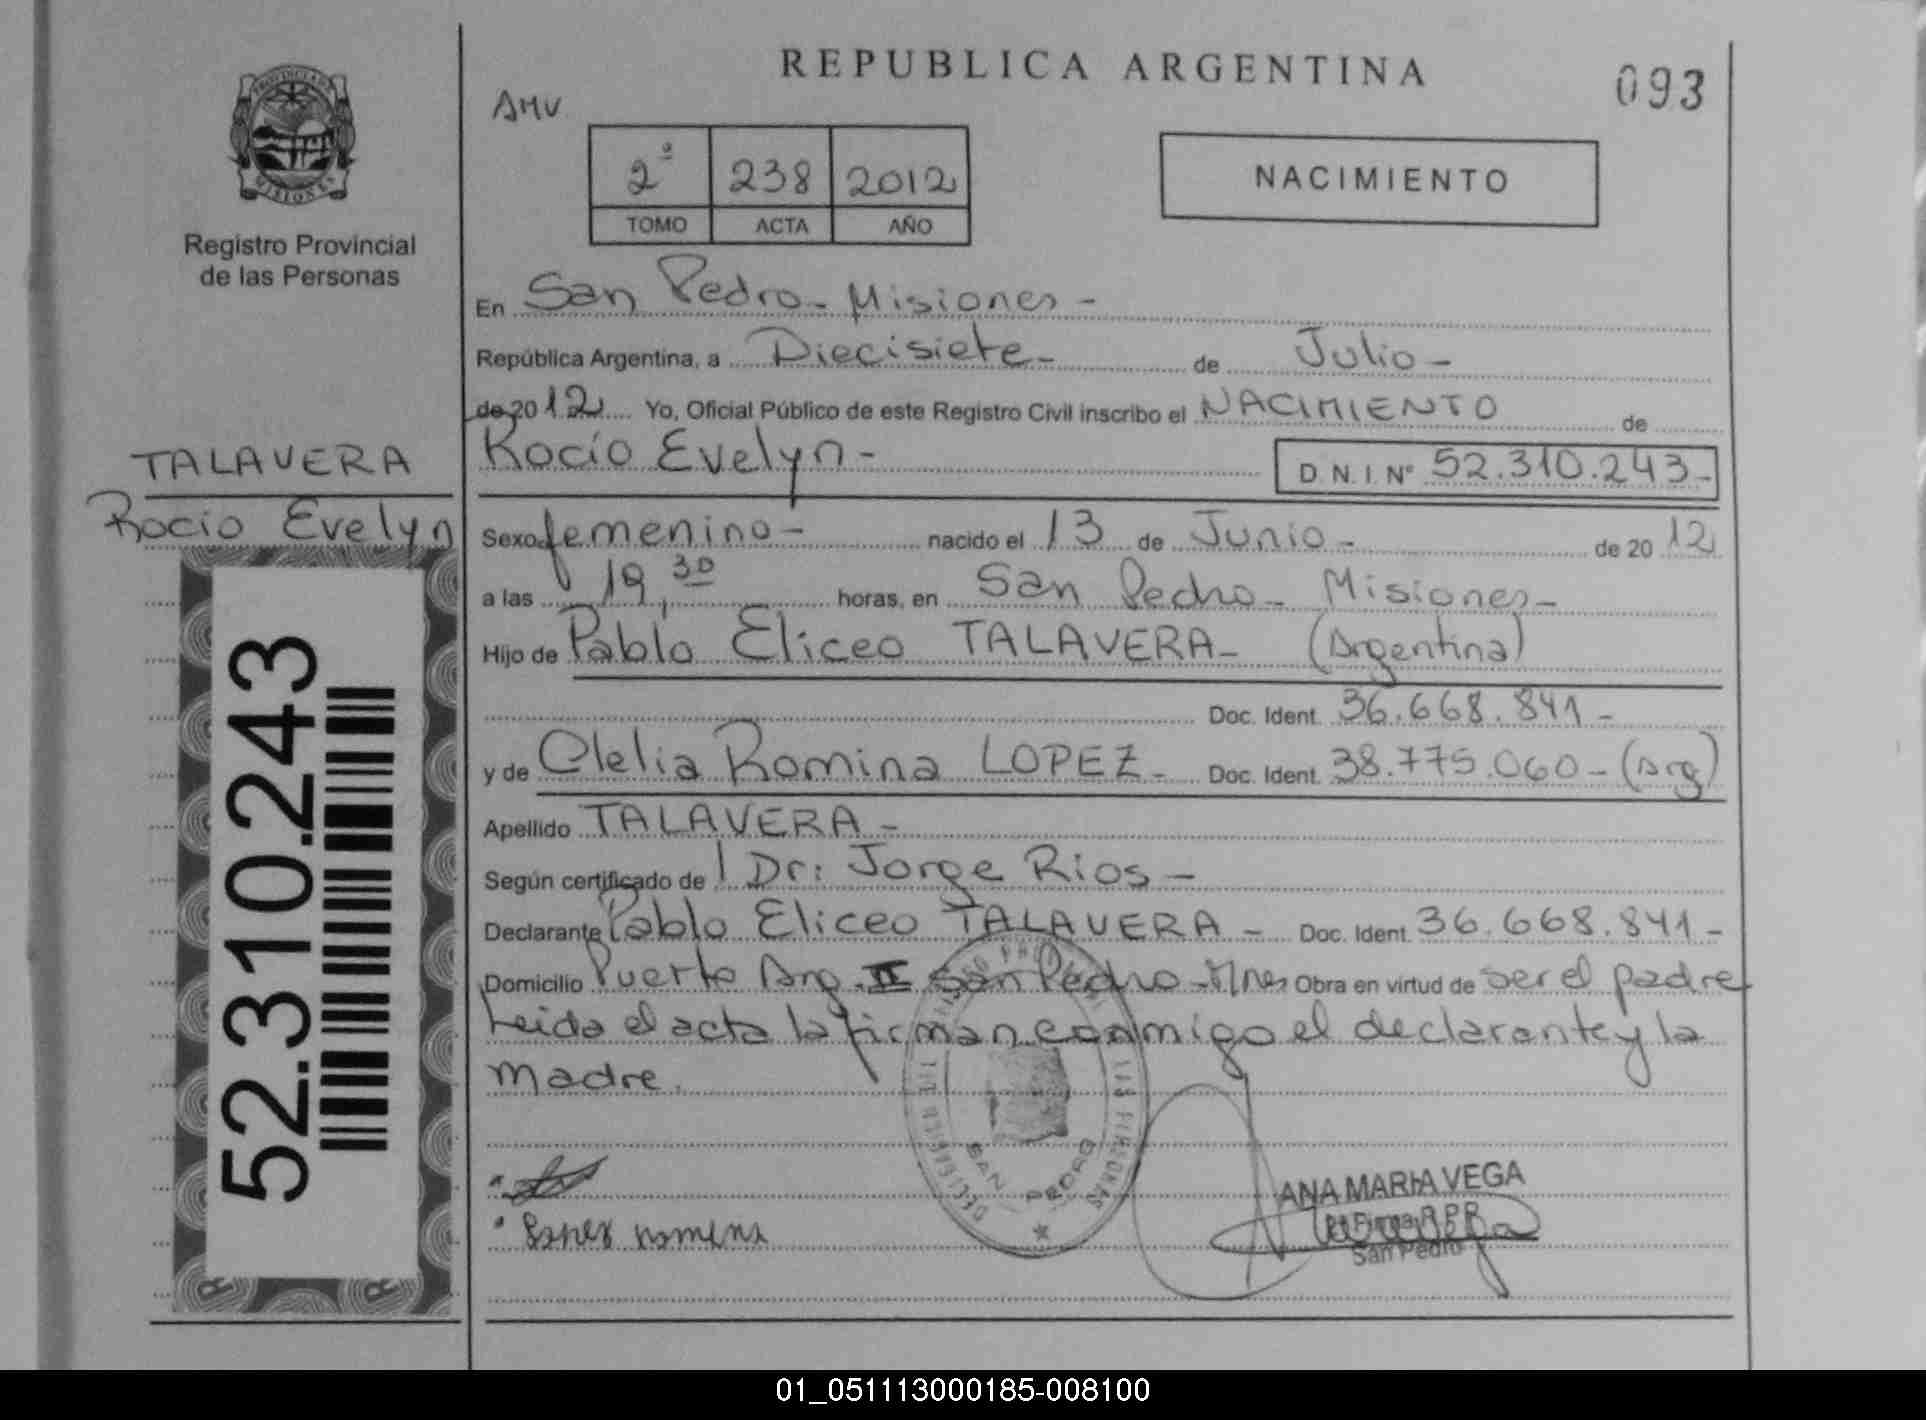 REPUBLICA ARGENTINA
093
AMV
2º 238 2012
TOMO ACTA AÑO
NACIMIENTO
PROVINCIA DE
MISIONES
Registro Provincial
de las Personas
TALAVERA
Rocío Evelyn
52.310.243
En San Pedro - Misiones -
República Argentina, a Diecisiete - de Julio -
de 2012 Yo, Oficial Público de este Registro Civil inscribo el NACIMIENTO de
Rocío Evelyn - D.N.I. Nº 52.310.243-
Sexo femenino - nacido el 13 de Junio - de 2012
a las 19,30 horas, en San Pedro - Misiones -
Hijo de Pablo Eliceo TALAVERA - (Argentina)
Doc. Ident. 36.668.841 -
y de Clelia Romina LOPEZ - Doc. Ident. 38.775.060 - (Arg)
Apellido TALAVERA -
Según certificado de Dr: Jorge Rios -
Declarante Pablo Eliceo TALAVERA - Doc. Ident. 36.668.841 -
Domicilio Puerto Arg. II San Pedro - Mnes Obra en virtud de ser el padre
Leida el acta la firman conmigo el declarante y la
madre.
SAN PEDRO
ANA MARIA VEGA
San Pedro
01_051113000185-008100